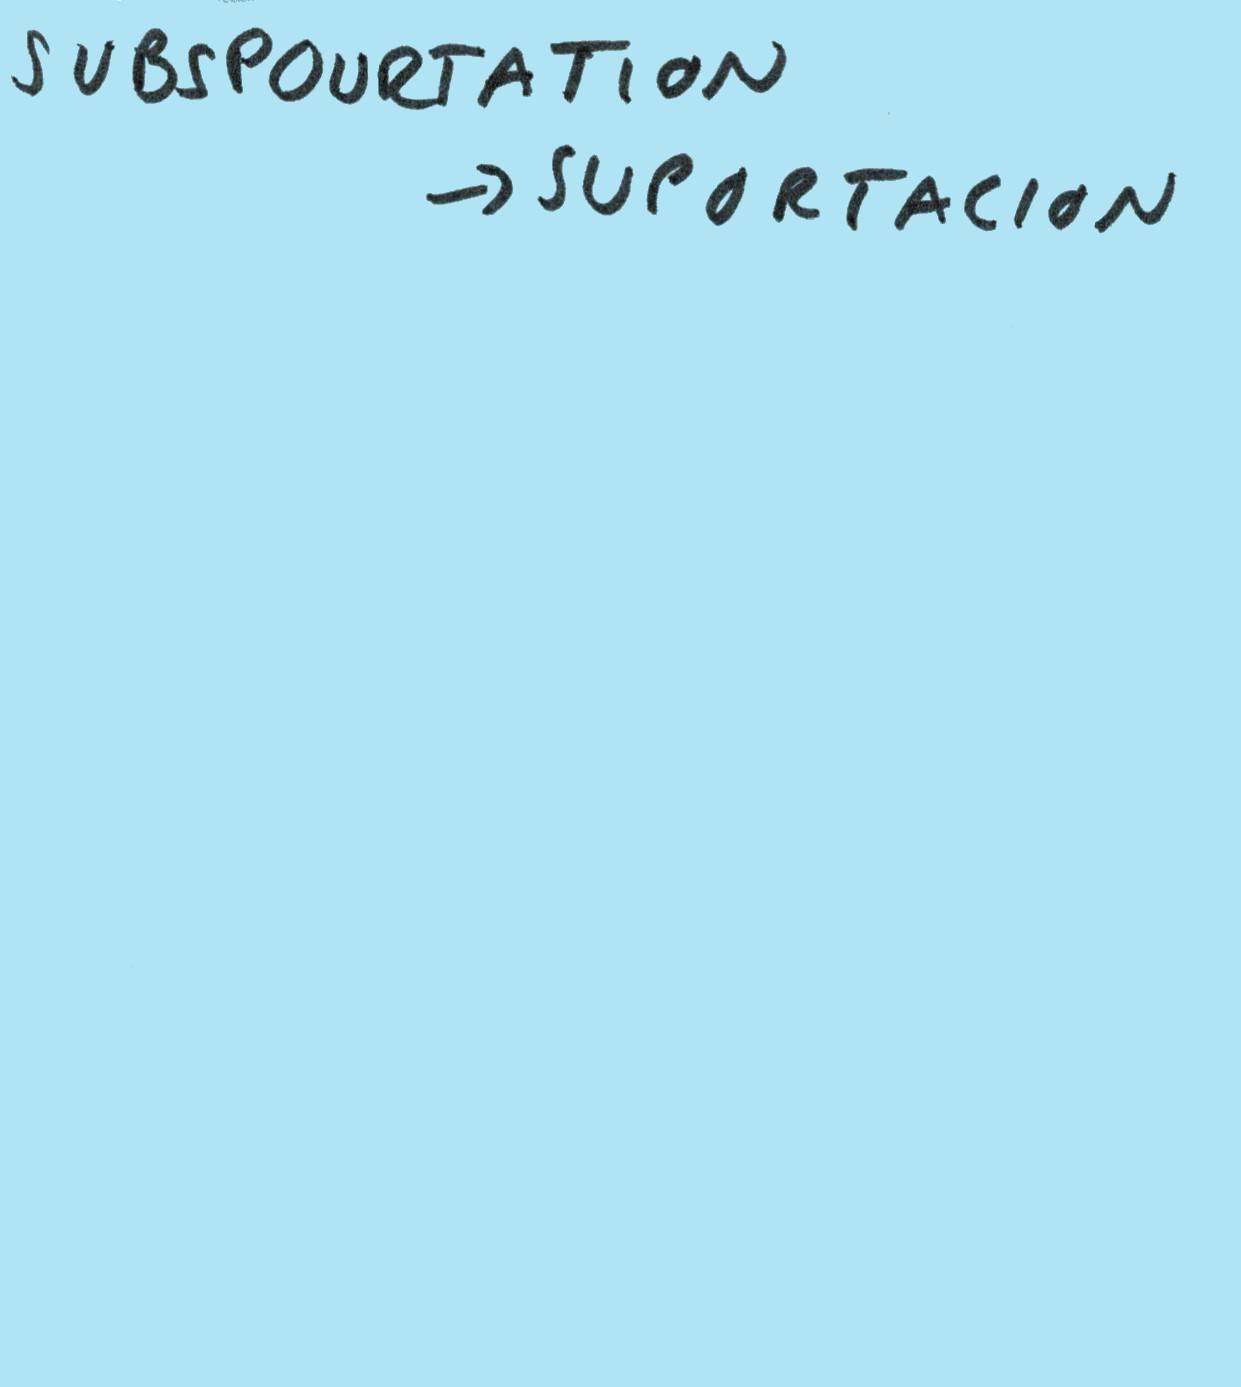 SUBSPOURTATION
→ SUPORTACION